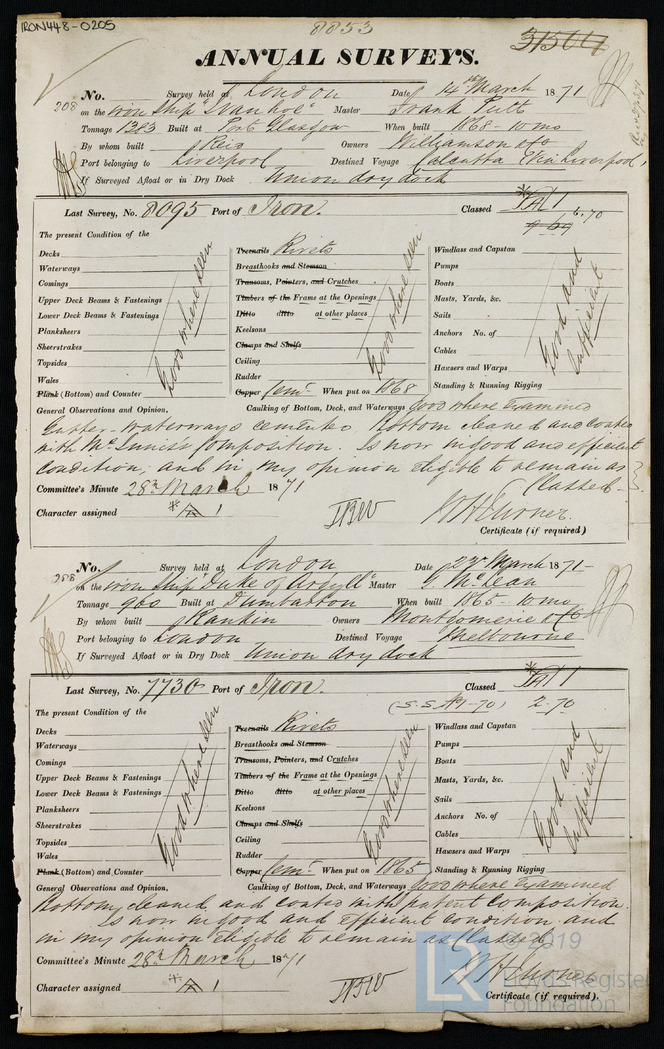 IRON448-0205
8853
31504
ANNUAL SURVEYS.
208
No. Survey held at London Date, 14th March 1871
on the iron Ship "Ivanhoe" Master Frank
Tonnage 1383 Built at Port Glasgow When built 1868 - 10 mo
By whom built Reid Owners Williamson & Co
Port belonging to Liverpool Destined Voyage Calcutta via Liverpool
If Surveyed Afloat or in Dry Dock Union dry dock
Last Survey, No. 8095 Port of Iron. Classed A 1
6.70
9 69
The present Condition of the
Decks
Waterways
Comings
Upper Deck Beams & Fastenings
Lower Deck Beams & Fastenings
Planksheers
Sheerstrakes
Topsides
Wales
Plank (Bottom) and Counter
Good where seen
Treenails Rivets
Breasthooks and Stemson
Transoms, Pointers, and Crutches
Timbers of the Frame at the Openings
Ditto ditto at other places
Keelsons
Clamps and Shelfs
Ceiling
Rudder
Copper Cemt When put on 1868
Good where seen
Windlass and Capstan
Pumps
Boats
Masts, Yards, &c.
Sails
Anchors No. of
Cables
Hawsers and Warps
Standing & Running Rigging
Good and Sufficient
General Observations and Opinion, Caulking of Bottom, Deck, and Waterways good where Examined
waterways cemented, Bottom cleaned and coated
with Composition. Is now in good and efficient
condition, and in my opinion eligible to remain as
Classed
Committee's Minute 28th March 1871
Character assigned A 1
Certificate (if required)
208
No. Survey held at London Date 22nd March 1871
on the iron Ship "Duke of Argyll" Master G McLean
Tonnage 960 Built at Dumbarton When built 1865 - 10 mo
By whom built Rankin Owners Montgomerie & Co
Port belonging to London Destined Voyage Melbourne
If Surveyed Afloat or in Dry Dock Union dry dock
Last Survey, No. 7730 Port of Iron. Classed A 1
(S.S. No 1-70) 2.70
The present Condition of the
Decks
Waterways
Comings
Upper Deck Beams & Fastenings
Lower Deck Beams & Fastenings
Planksheers
Sheerstrakes
Topsides
Wales
Plank (Bottom) and Counter
Good where seen
Treenails Rivets
Breasthooks and Stemson
Transoms, Pointers, and Crutches
Timbers of the Frame at the Openings
Ditto ditto at other places
Keelsons
Clamps and Shelfs
Ceiling
Rudder
Copper Cemt When put on 1865
Good where seen
Windlass and Capstan
Pumps
Boats
Masts, Yards, &c.
Sails
Anchors No. of
Cables
Hawsers and Warps
Standing & Running Rigging
Good and Sufficient
General Observations and Opinion, Caulking of Bottom, Deck, and Waterways good where Examined
Bottom cleaned and coated with patent Composition.
Is now in good and efficient condition and
in my opinion eligible to remain as Classed
Committee's Minute 28th March 1871
Character assigned A 1
Certificate (if required).
© 2019
Lloyd's Register
Foundation